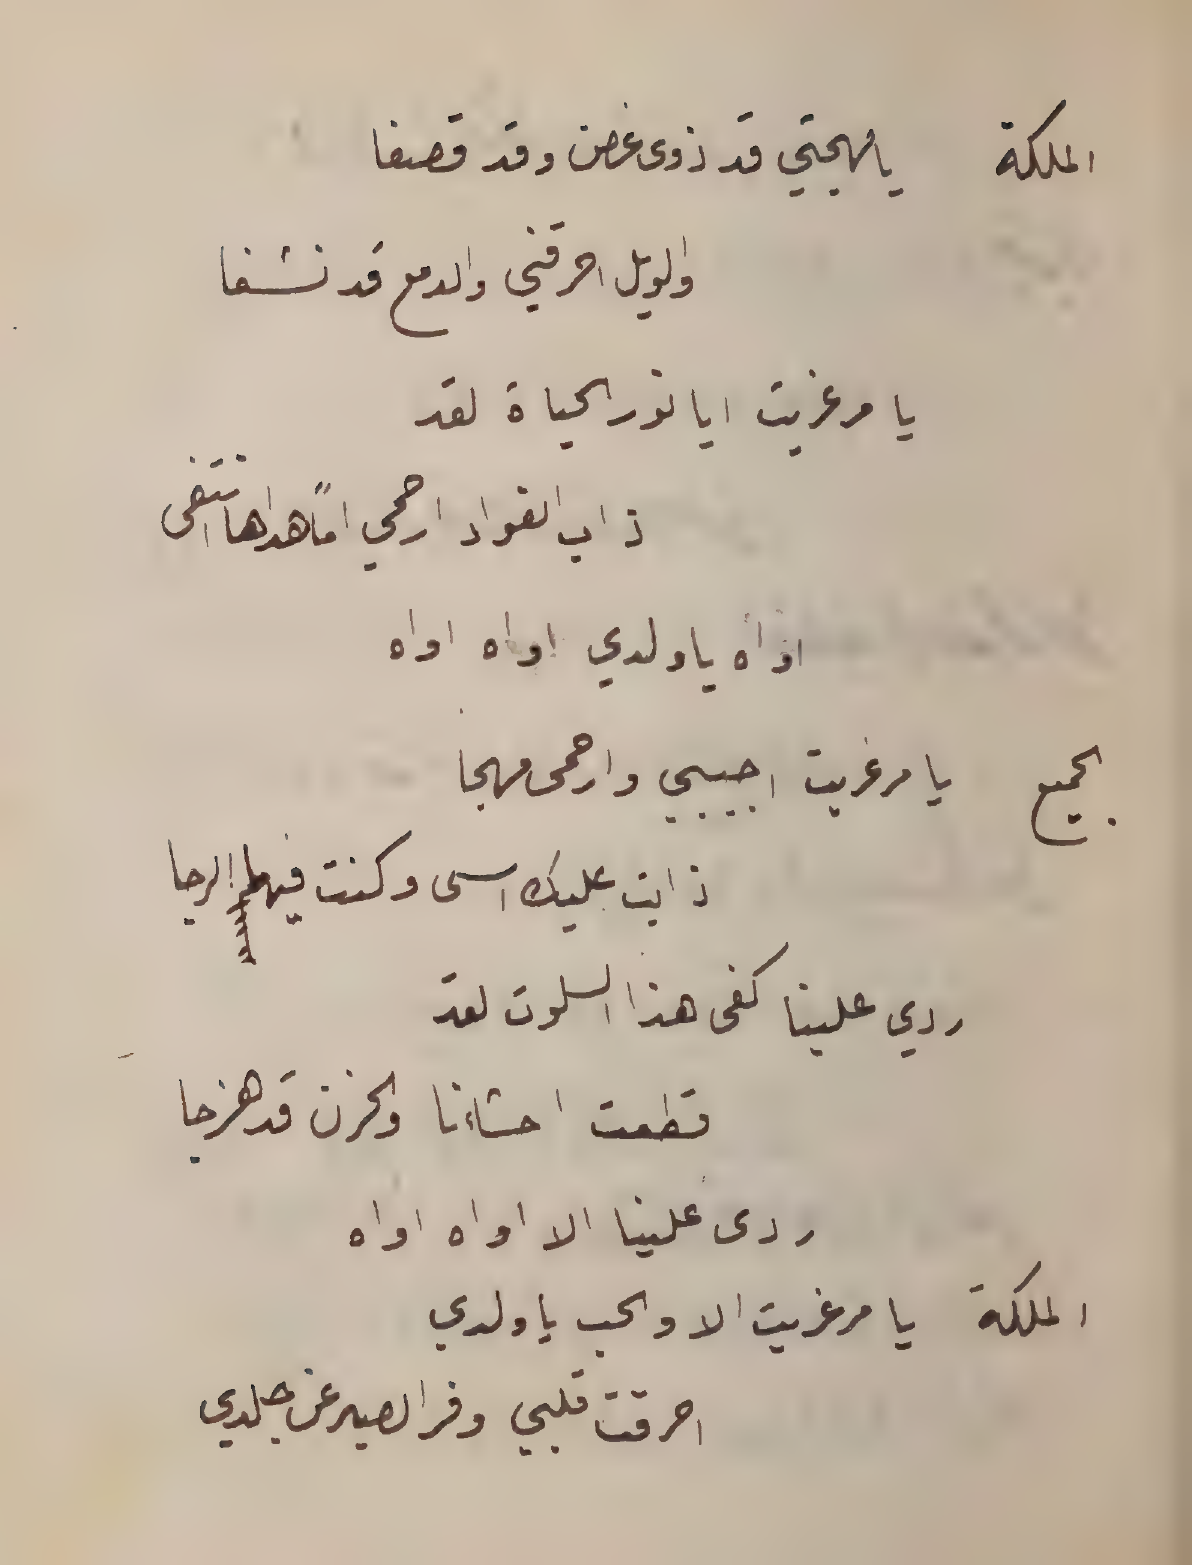 الملكة يا مهجتي قد ذوى غصن وقد قصفا
والويل احرقني والدمع قد نشفا
يا مرغريت ايا نور الحياة لقد
ذاب الفواد ارحمي اماً
اواه يا ولدي اواه اواه
الجميع يا مرغريت اجيبي وارحمى مهجا
ذابت عليك اسى وكنت فيها الرجا
ردي علينا كفى هذا السكوت لقد
قطعت احشاءنا والحزن قد هزجا
ردى علينا الا اواه اواه
الملكة يا مرغريت الا والحب يا ولدي
احرقت قلبي وفر الصبر عن جلدي